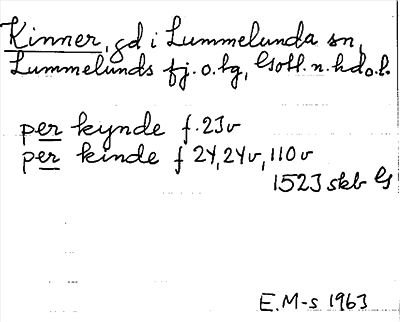 Kinner, gd i Lummelunda sn,
Lummelunds fj. o. lg, Gotl. n. hd o. l.
per kynde f. 23v
per kinde f 24, 24v, 110v
1523 skb G
E.M-s 1963